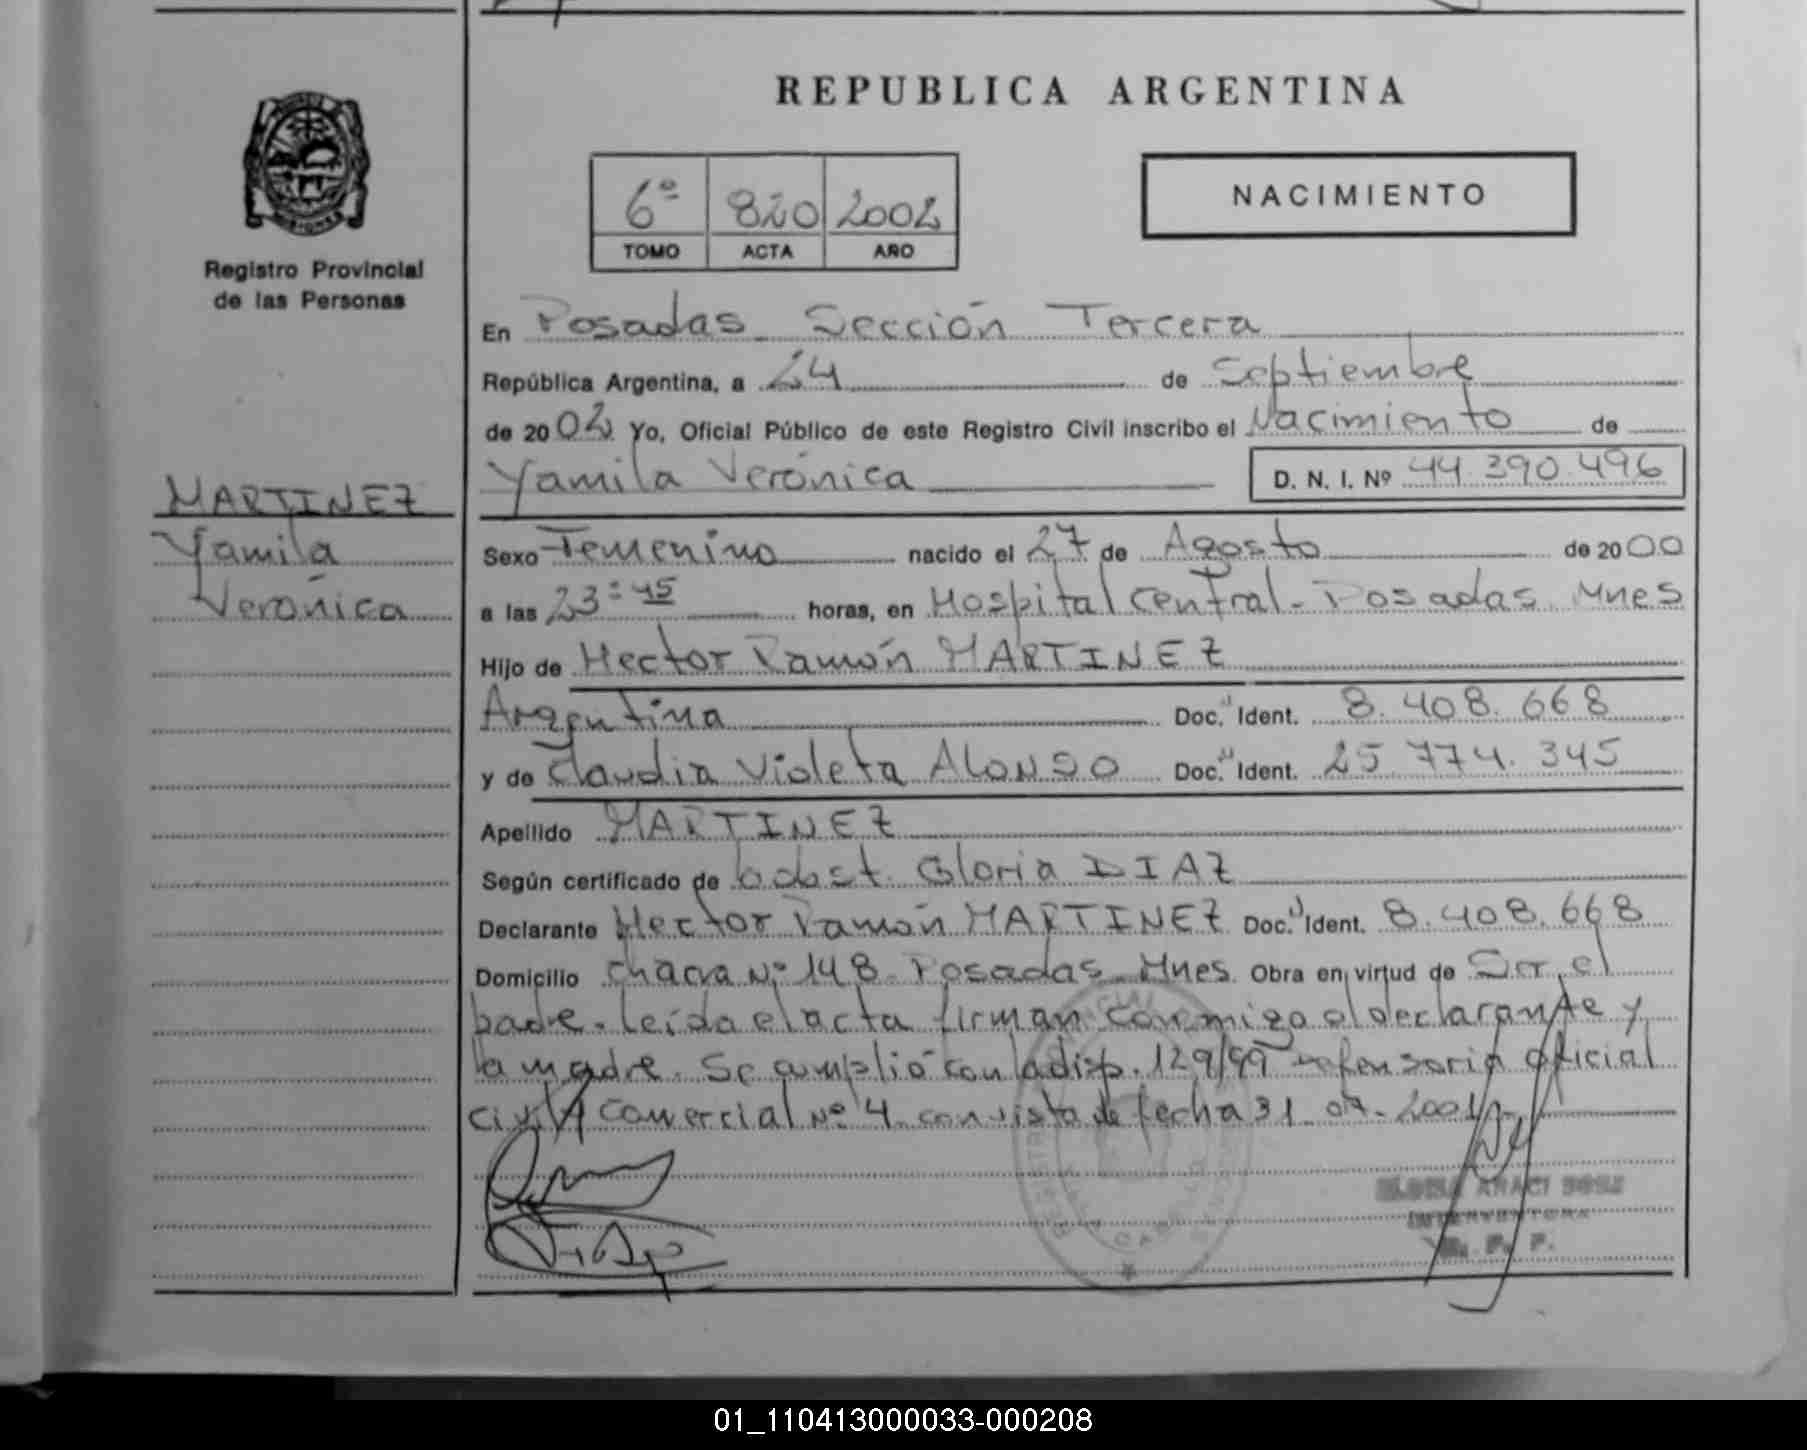 REPUBLICA ARGENTINA
6º 820 2002
TOMO ACTA AÑO
NACIMIENTO
Registro Provincial
de las Personas
MARTINEZ
Yamila
Verónica
En Posadas Sección Tercera
República Argentina, a 24 de Septiembre
de 2002 Yo, Oficial Público de este Registro Civil inscribo el Nacimiento de
Yamila Verónica D. N. I. Nº 44.390.496
Sexo Femenino nacido el 27 de Agosto de 2000
a las 23:45 horas, en Hospital Central - Posadas Mnes
Hijo de Hector Ramón MARTINEZ
Argentina Doc. Ident. 8.408.668
y de Claudia Violeta Alonso Doc. Ident. 25.774.345
Apellido MARTINEZ
Según certificado de obst. Gloria DIAZ
Declarante Hector Ramón MARTINEZ Doc. Ident. 8.408.668
Domicilio chacra Nº 148 Posadas Mnes. Obra en virtud de Ser el
padre. Leída el acta firman conmigo el declarante y
la madre. Se cumplió con la disp. 129/99 Defensoria oficial
civil y comercial Nº 4 con vista de fecha 31-07-2001
ARACI
INTERVENTORA
R. P. P.
01_110413000033-000208